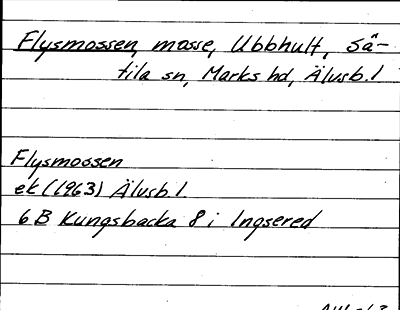 Flysmossen, mosse, Ubbhult, Sä-
tila sn, Marks hd, Älvsb. l
Flysmossen
ek (1963) Älvsb. l.
6 B Kungsbacka 8 i Ingsered